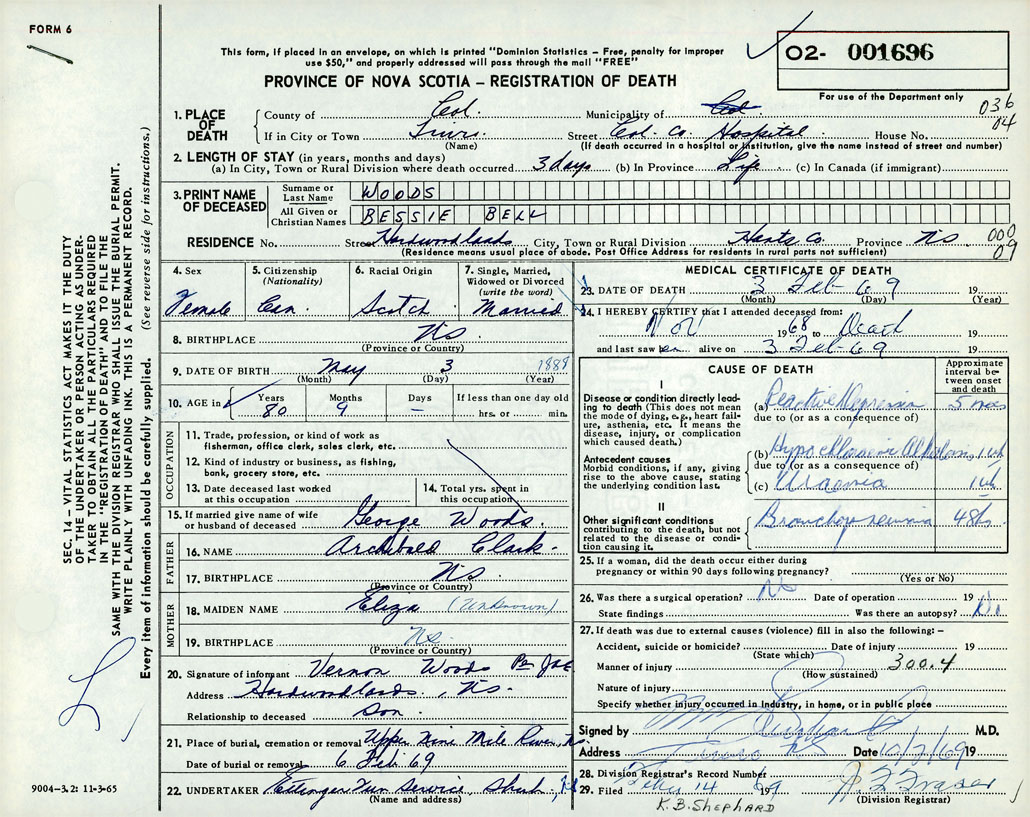 FORM 6
This form, if placed in an envelope, on which is printed "Dominion Statistics – Free, penalty for improper
use $50," and properly addressed will pass through the mail "FREE"
O2- 001696
For use of the Department only
PROVINCE OF NOVA SCOTIA – REGISTRATION OF DEATH
036
04
1. PLACE OF DEATH
County of Col. Municipality of Col
If in City or Town Truro. Street Col. Co. Hospital House No.
(Name) (If death occurred in a hospital or institution, give the name instead of street and number)
2. LENGTH OF STAY (in years, months and days)
(a) In City, Town or Rural Division where death occurred 3 days (b) In Province Life (c) In Canada (if immigrant)
3. PRINT NAME OF DECEASED
Surname or Last Name WOODS
All Given or Christian Names BESSIE BELL
RESIDENCE No. Street Hardwoodlands City, Town or Rural Division Hants Co. Province NS 000
(Residence means usual place of abode. Post Office Address for residents in rural parts not sufficient) 09
4. Sex
Female
5. Citizenship (Nationality)
Can.
6. Racial Origin
Scotch
7. Single, Married, Widowed or Divorced (write the word)
Married
8. BIRTHPLACE NS
(Province or Country)
9. DATE OF BIRTH May 3 1888
(Month) (Day) (Year)
10. AGE in
Years Months Days If less than one day old
80 9 – hrs. or min.
OCCUPATION
11. Trade, profession, or kind of work as
fisherman, office clerk, sales clerk, etc.
12. Kind of industry or business, as fishing,
bank, grocery store, etc.
13. Date deceased last worked
at this occupation
14. Total yrs. spent in
this occupation
15. If married give name of wife
or husband of deceased George Woods
FATHER
16. NAME Archibald Clark.
17. BIRTHPLACE NS
(Province or Country)
MOTHER
18. MAIDEN NAME Eliza (Unknown)
19. BIRTHPLACE NS
(Province or Country)
20. Signature of informant Vernon Woods Per
Address Hardwoodlands, NS.
Relationship to deceased Son.
21. Place of burial, cremation or removal Upper Nine Mile River, NS
Date of burial or removal 6 Feb 69
22. UNDERTAKER Ettinger Fun Service, Shub, NS
(Name and address)
MEDICAL CERTIFICATE OF DEATH
23. DATE OF DEATH 3 Feb 69 19
(Month) (Day) (Year)
24. I HEREBY CERTIFY that I attended deceased from:
Nov 1968 to Death 19
and last saw her alive on 3 Feb-69 19
CAUSE OF DEATH
Approximate interval between onset and death
I
Disease or condition directly leading to death (This does not mean the mode of dying, e.g., heart failure, asthenia, etc. It means the disease, injury, or complication which caused death.)
(a) Reactive Depression 5 mos
due to (or as a consequence of)
Antecedent causes
Morbid conditions, if any, giving rise to the above cause, stating the underlying condition last.
(b) Hypochloraemic Alkalosis 1 wk
due to (or as a consequence of)
(c) Uraemia 1 wk
II
Other significant conditions
contributing to the death, but not related to the disease or condition causing it.
Bronchopneumonia 48 hrs
25. If a woman, did the death occur either during
pregnancy or within 90 days following pregnancy?
(Yes or No)
26. Was there a surgical operation? No Date of operation 19
State findings Was there an autopsy? No
27. If death was due to external causes (violence) fill in also the following: –
Accident, suicide or homicide? Date of injury 19
(State which)
Manner of injury 300.4
(How sustained)
Nature of injury
Specify whether injury occurred in industry, in home, or in public place
Signed by M.D.
Address Truro NS Date 10/2/69 19
28. Division Registrar's Record Number
29. Filed Feby 14 1969
(Division Registrar)
K.B. SHEPHARD
SEC. 14 – VITAL STATISTICS ACT MAKES IT THE DUTY
OF THE UNDERTAKER OR PERSON ACTING AS UNDER-
TAKER TO OBTAIN ALL THE PARTICULARS REQUIRED
IN THE "REGISTRATION OF DEATH" AND TO FILE THE
SAME WITH THE DIVISION REGISTRAR WHO SHALL ISSUE THE BURIAL PERMIT.
WRITE PLAINLY WITH UNFADING INK. THIS IS A PERMANENT RECORD.
Every item of information should be carefully supplied. (See reverse side for instructions.)
9004-3.2: 11-3-65